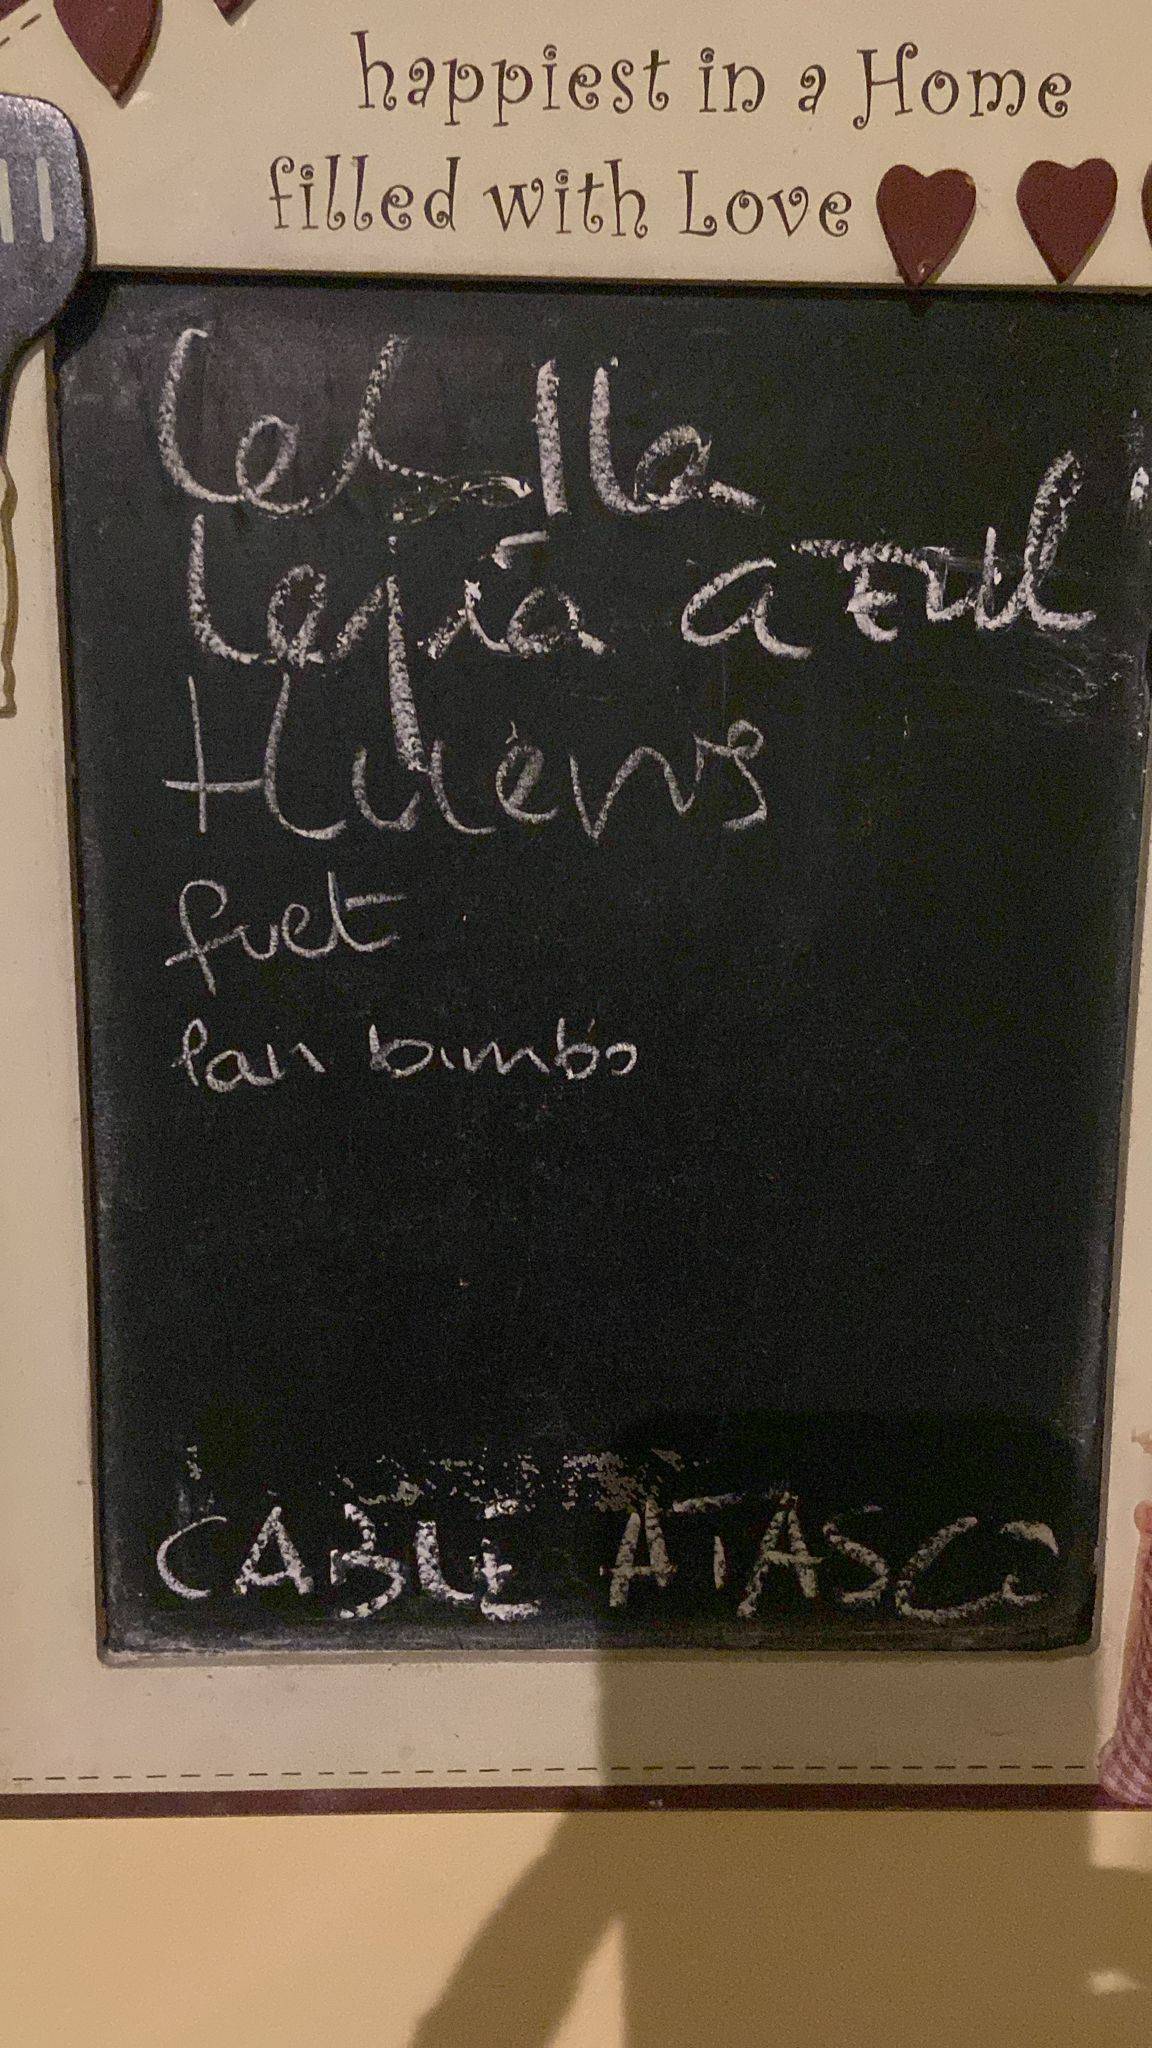 happiest in a Home
filled with Love
Cebolla
Lejía azul
Huevos
fuet
Pan bimbo
CABLE ATASCO